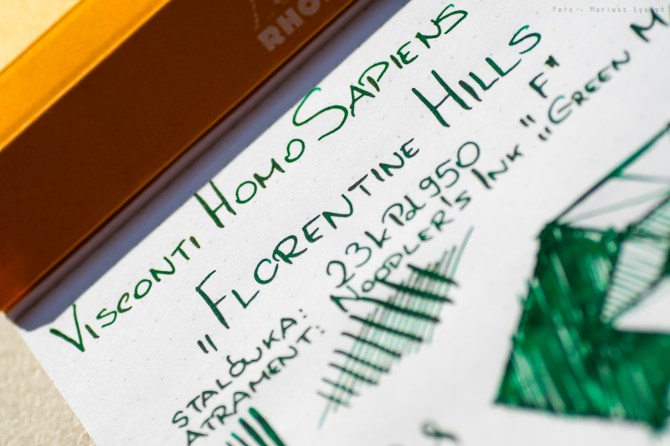 Foto - Mariusz
RHO
VISCONTI HOMO SAPIENS
"FLORENTINE HILLS
STALÓWKA: 23kPd950 "F"
ATRAMENT: NOODLER'S INK "GREEN M